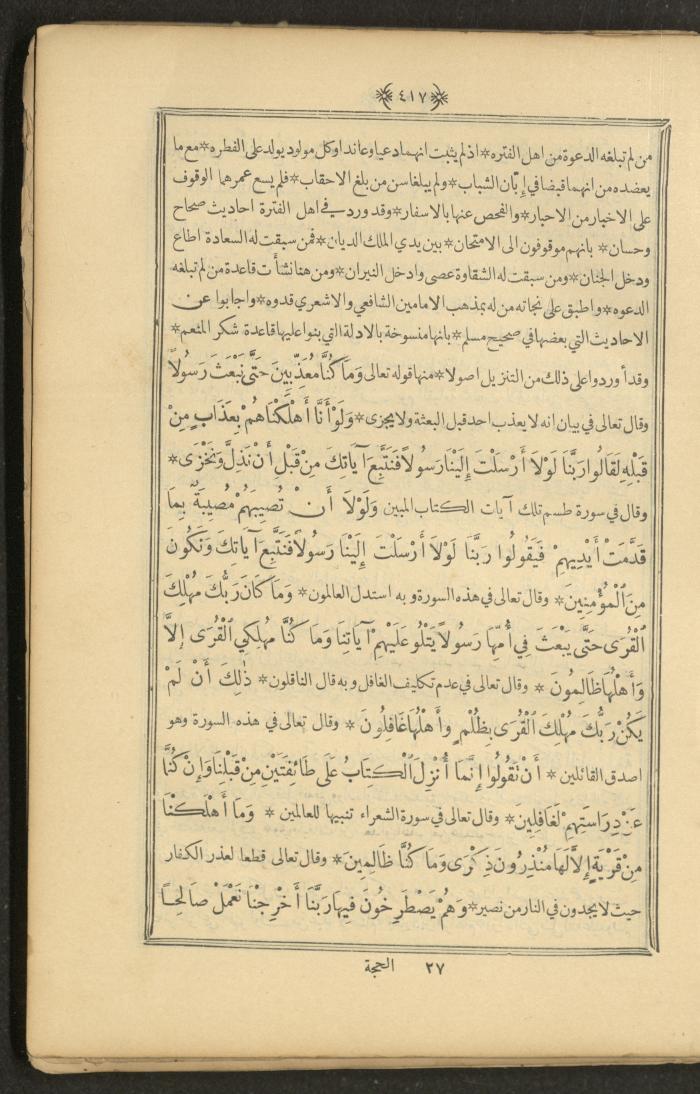 ٤١٧
من لم تبلغه الدعوة من اهل الفتره * اذ لم يثبت انهما دعيا وعاندا وكل مولود يولد على الفطره * مع ما
يعضده من انهما قبضا في إبّان الشباب * ولم يبلغا سن من بلغ الاحقاب * فلم يسع عمرهما الوقوف
على الاخبار من الاحبار * والفحص عنها بالاسفار * وقد ورد في اهل الفترة احاديث صحاح
وحسان * بانهم موقوفون الى الامتحان * بين يدي الملك الديان * فمن سبقت له السعادة اطاع
ودخل الجنان * ومن سبقت له الشقاوة عصى وادخل النيران * ومن هنا نشأت قاعدة من لم تبلغه
الدعوه * واطبق على نجاته من له بمذهب الامامين الشافعي والاشعري قدوه * واجابوا عن
الاحاديث التي بعضها في صحيح مسلم * بانها منسوخة بالادلة التي بنوا عليها قاعدة شكر المنعم *
وقد أوردوا على ذلك من التنزيل اصولا * منها قوله تعالى وَمَا كُنَّا مُعَذِّبِينَ حَتَّى نَبْعَثَ رَسُولًا
وقال تعالى في بيان انه لا يعذب احد قبل البعثة ولا يجزى * وَلَوْ أَنَّا أَهْلَكْنَاهُمْ بِعَذَابٍ مِنْ
قَبْلِهِ لَقَالُوا رَبَّنَا لَوْلَا أَرْسَلْتَ إِلَيْنَا رَسُولًا فَنَتَّبِعَ آيَاتِكَ مِنْ قَبْلِ أَنْ نَذِلَّ وَنَخْزَى *
وقال في سورة طسم تلك آيات الكتاب المبين وَلَوْلَا أَنْ تُصِيبَهُمْ مُصِيبَةٌ بِمَا
قَدَّمَتْ أَيْدِيهِمْ فَيَقُولُوا رَبَّنَا لَوْلَا أَرْسَلْتَ إِلَيْنَا رَسُولًا فَنَتَّبِعَ آيَاتِكَ وَنَكُونَ
مِنَ ٱلْمُؤْمِنِينَ * وقال تعالى في هذه السورة وبه استدل العالمون * وَمَا كَانَ رَبُّكَ مُهْلِكَ
ٱلْقُرَى حَتَّى يَبْعَثَ فِي أُمِّهَا رَسُولًا يَتْلُو عَلَيْهِمْ آيَاتِنَا وَمَا كُنَّا مُهْلِكِي ٱلْقُرَى إِلَّا
وَأَهْلُهَا ظَالِمُونَ * وقال تعالى في عدم تكليف الغافل وبه قال الناقلون * ذٰلِكَ أَنْ لَمْ
يَكُنْ رَبُّكَ مُهْلِكَ ٱلْقُرَى بِظُلْمٍ وَأَهْلُهَا غَافِلُونَ * وقال تعالى في هذه السورة وهو
اصدق القائلين * أَنْ تَقُولُوا إِنَّمَا أُنْزِلَ ٱلْكِتَابُ عَلَى طَائِفَتَيْنِ مِنْ قَبْلِنَا وَإِنْ كُنَّا
عَنْ دِرَاسَتِهِمْ لَغَافِلِينَ * وقال تعالى في سورة الشعراء تنبيها للعالمين * وَمَا أَهْلَكْنَا
مِنْ قَرْيَةٍ إِلَّا لَهَا مُنْذِرُونَ ذِكْرَى وَمَا كُنَّا ظَالِمِينَ * وقال تعالى قطعا لعذر الكفار
حيث لا يجدون في النار من نصير * وَهُمْ يَصْطَرِخُونَ فِيهَا رَبَّنَا أَخْرِجْنَا نَعْمَلْ صَالِحًا
٢٧ الحجة